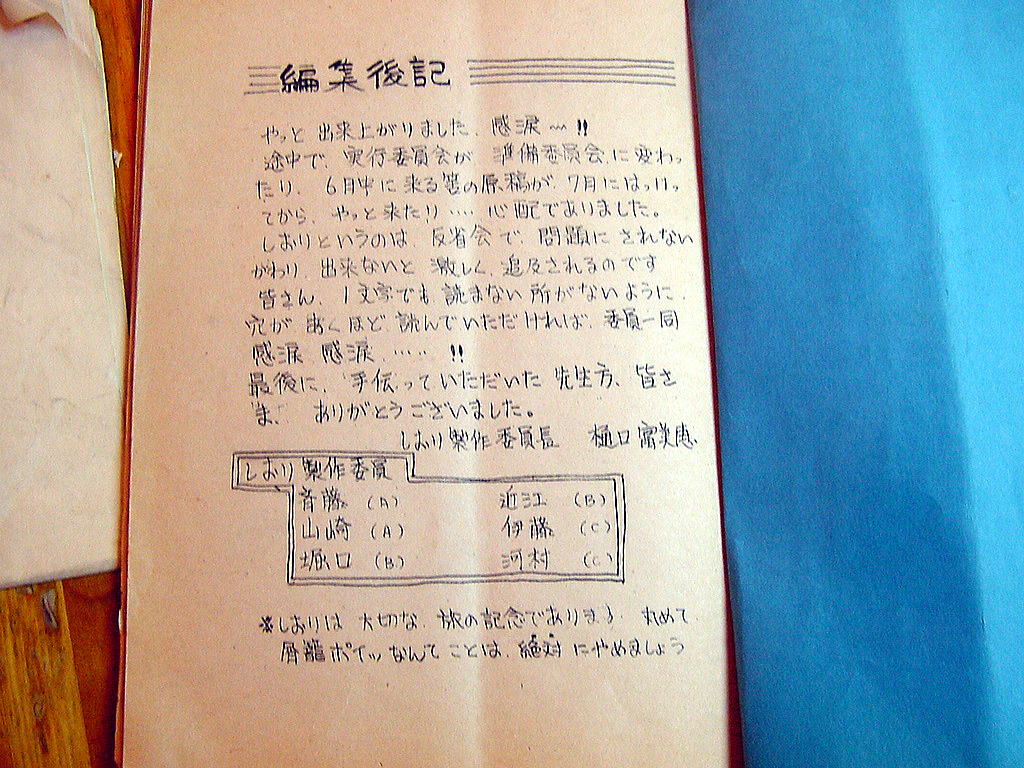 編集後記
やっと出来上がりました、感涙〜!!
途中で、実行委員会が、準備委員会に変わっ
たり、6月中に来る筈の原稿が、7月にはいっ
てから、やっと来たり‥‥心配でありました。
しおりというのは、反省会で、問題にされない
かわり、出来ないと激しく、追及されるのです
皆さん、1文字でも読まない所がないように、
穴があくほど、読んでいただければ、委員一同
感涙、感涙、‥‥!!
最後に、手伝っていただいた先生方、皆さ
ま、ありがとうございました。
しおり製作委員長 樋口富美恵
しおり製作委員
斉藤 (A) 近江 (B)
山崎 (A) 伊藤 (C)
堀口 (B) 河村 (C)
※しおりは大切な、旅の記念でありまる、丸めて
屑籠ポイッなんてことは、絶対にやめましょう